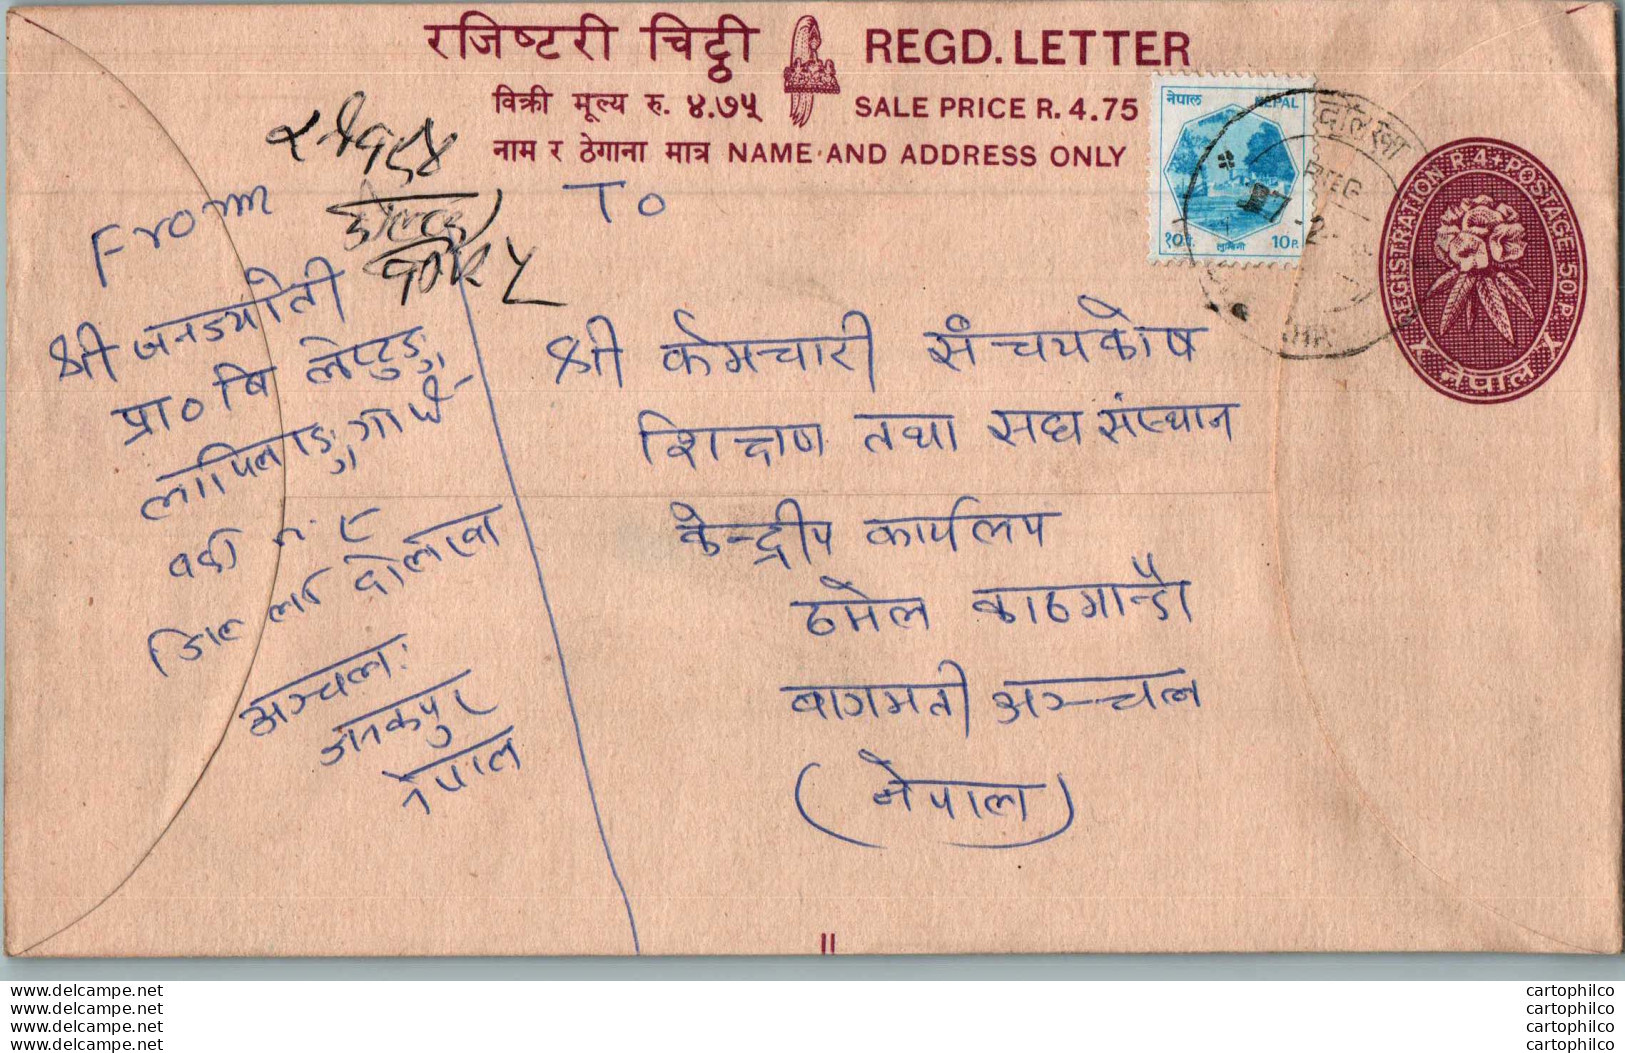 रजिष्टरी चिट्ठी REGD. LETTER
विक्री मूल्य रु. ४.७५ SALE PRICE R. 4.75
नाम र ठेगाना मात्र NAME AND ADDRESS ONLY
नेपाल NEPAL
१०पै. लुम्बिनी 10P.
दोलखा
REGISTRATION R.4.POSTAGE 50P.
नेपाल
From
श्री जनज्योती
प्रा० बि
जिल्ला दोलखा
अञ्चलः
जनकपुर
नेपाल
To
श्री कर्मचारी संचयकोष
शिक्षण तथा सघ संस्थान
केन्द्रीय कार्यलय
ठमेल काठमान्डौ
बागमती अञ्चल
(नेपाल)
www.delcampe.net
www.delcampe.net
www.delcampe.net
www.delcampe.net
cartophilco
cartophilco
cartophilco
cartophilco